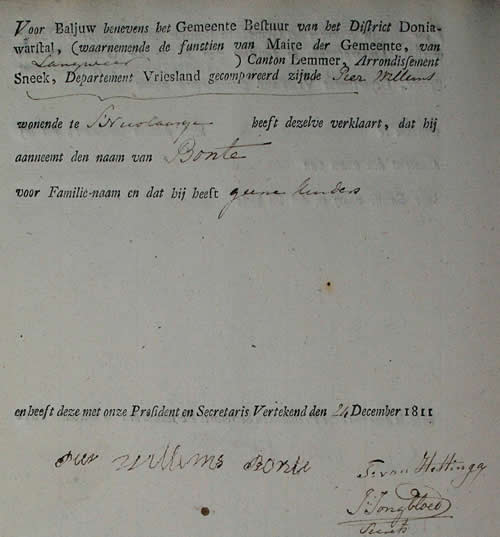 Voor Baljuw benevens het Gemeente Bestuur van het District Donia-
warstal, (waarnemende de functien van Maire der Gemeente, van
Langweer ) Canton Lemmer, Arrondissement
Sneek, Departement Vriesland gecompareerd zijnde Pier Willems
wonende te St Nicolaasga heeft dezelve verklaart, dat hij
aanneemt den naam van Bonte
voor Familie-naam en dat hij heeft geene kinders
en heeft deze met onze President en Secretaris Vertekend den 24 December 1811
Pier Willems Bonte
Hettinga
J: Jongbloed
Secrets